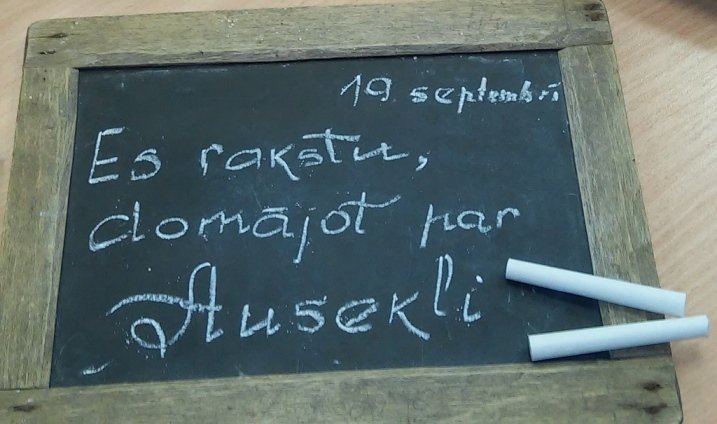 19 septembrī
Es rakstu,
domājot par
Ausekli